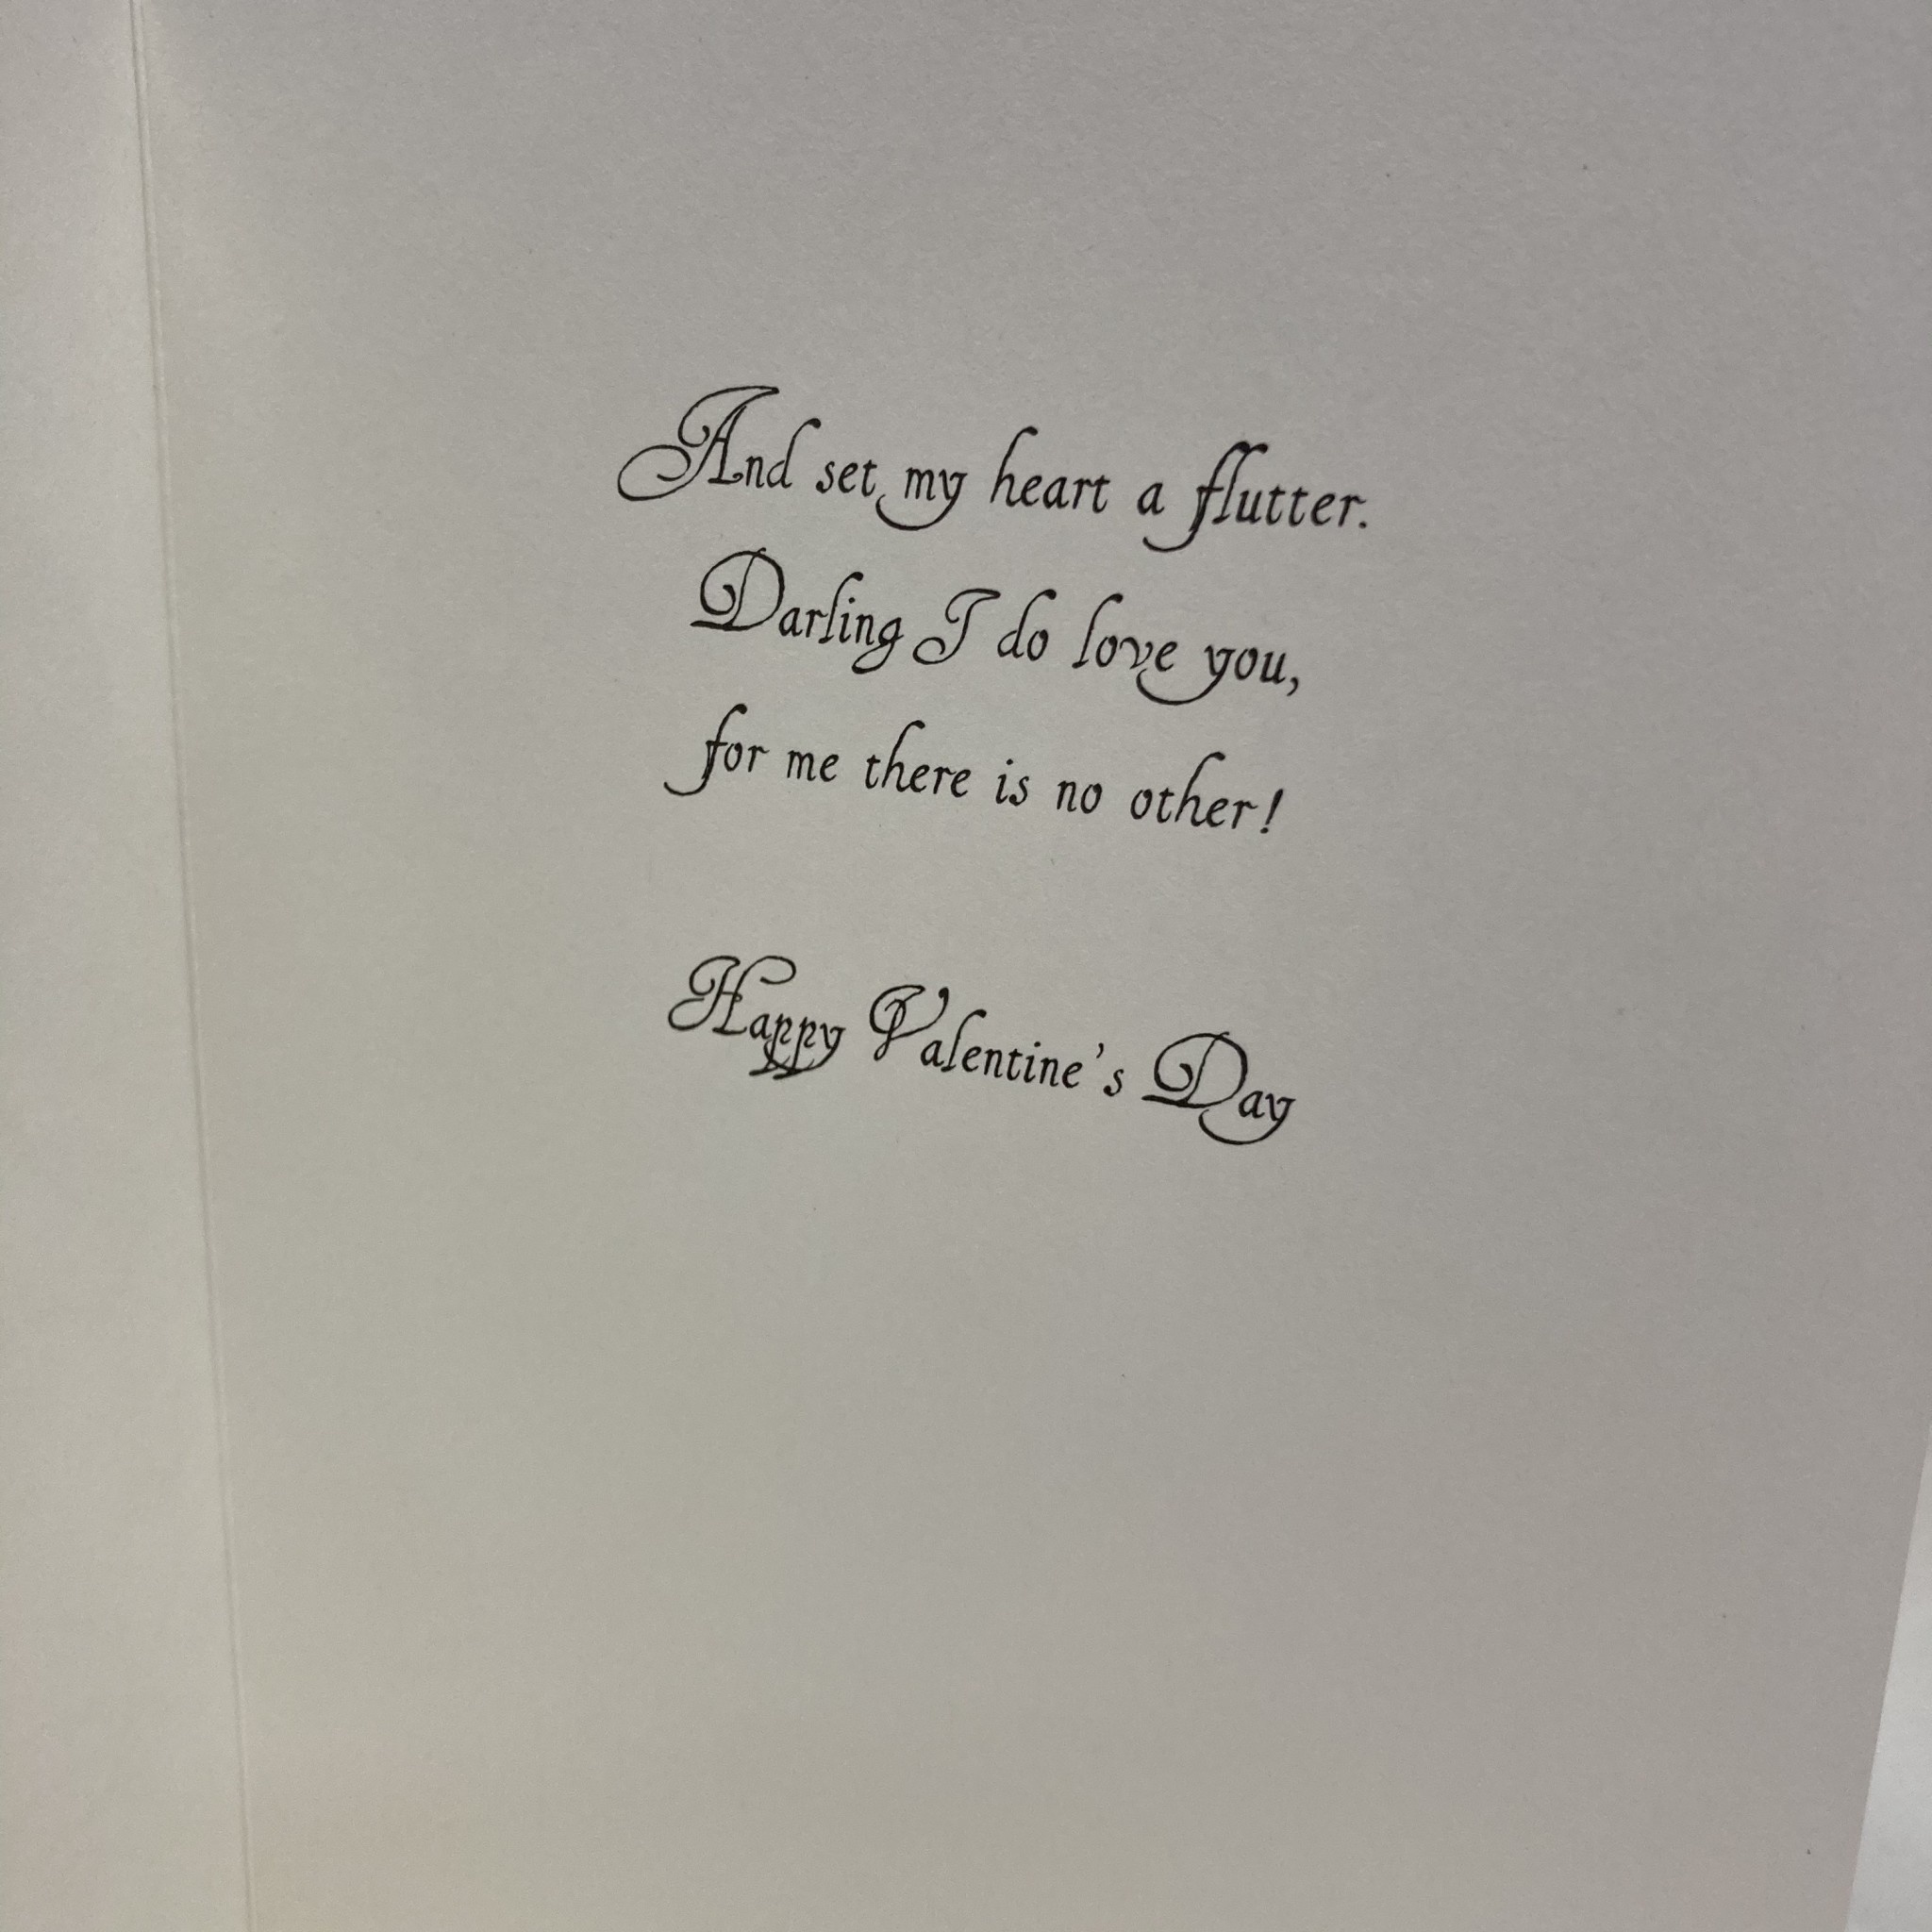 And set my heart a flutter.
Darling I do love you,
for me there is no other!
Happy Valentine's Day